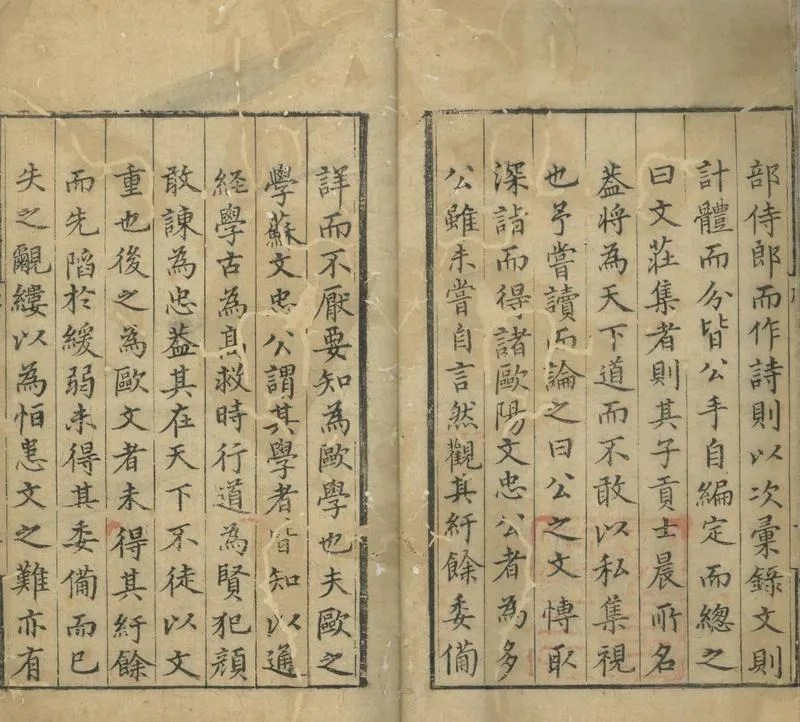 部侍郎而作詩則以次彙錄文則
計體而分皆公手自編定而總之
曰文莊集者則其子貢士晨所名
葢將為天下道而不敢以私集視
也予嘗讀而論之曰公之文博取
深詣而得諸歐陽文忠公者為多
公雖未嘗自言然觀其紆餘委備
詳而不厭要知為歐學也夫歐之
學蘇文忠公謂其學者皆知以通
經學古為髙救時行道為賢犯顔
敢諫為忠葢其在天下不徒以文
重也後之為歐文者未得其紆餘
而先陷於緩弱未得其委備而已
失之覼縷以為怕恚文之難亦有